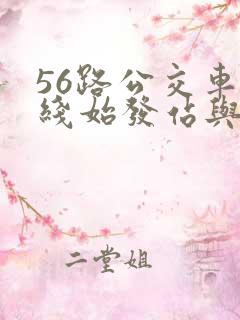 56路公交車
綫始發佔與
二堂姐